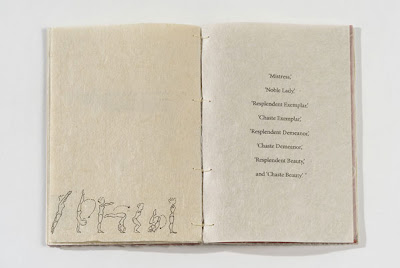 'Mistress,'
'Noble Lady,'
'Resplendent Exemplar,'
'Chaste Exemplar,'
'Resplendent Demeanor,'
'Chaste Demeanor,'
'Resplendent Beauty,'
and 'Chaste Beauty.' "